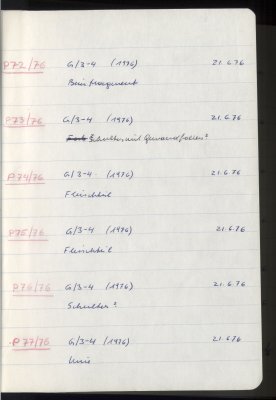 P72/76 G/3-4 (1976) 21.6.76
Beinfragment
P73/76 G/3-4 (1976) 21.6.76
Schulter mit Gewandfalten?
P74/76 G/3-4 (1976) 21.6.76
Fleischteil
P75/76 G/3-4 (1976) 21.6.76
Fleischteil
P76/76 G/3-4 (1976) 21.6.76
Schulter?
P77/76 G/3-4 (1976) 21.6.76
Knie